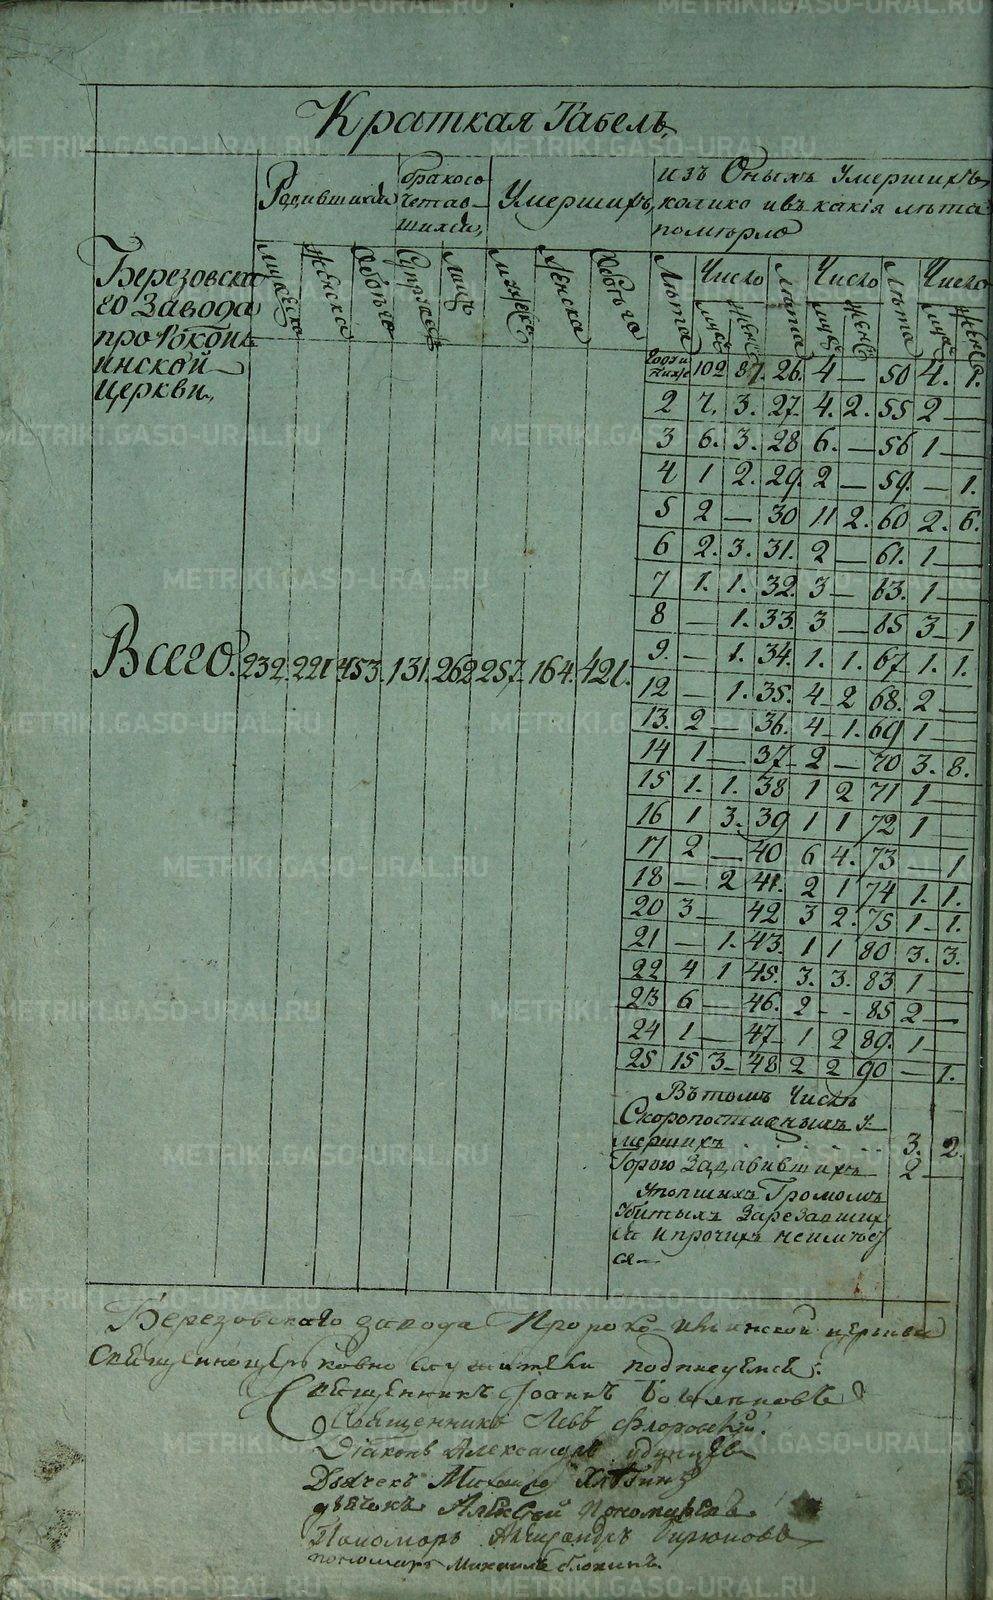 Краткая Табель
Родившихся
бракосо
четав-
шихся
Умершихъ
изъ Оныхъ умершихъ
колико ивъ какія лѣта
помѣрло
Березовска
го Завода
про Рокоиль
инской
Церкви
мужеска
женска
Обоего
Супружес
лицъ
мужеска
женска
Обоего
Лѣта Число Лѣта Число Лѣта Число
муж жен муж жен муж жен
Года и ниже 102 87. 26. 4 — 50 4. 1.
2 7. 3. 27. 4. 2. 55 2 —
3 6. 3. 28 6. — 56 1 —
4 1 2. 29. 2 — 59. — 1.
5 2 — 30 11 2. 60 2. 6.
6 2. 3. 31. 2 — 61. 1 —
7 1. 1. 32. 3 — 63. 1 —
8 — 1. 33. 3 — 65 3 — 1
9. — 1. 34. 1. 1. 67 1. 1.
12 — 1. 35. 4 2 68. 2 —
13. 2 — 36. 4 1. 69 1 —
14 1 — 37 2 — 70 3. 8.
15 1. 1. 38 1 2 71 1 —
16 1 3. 39 1 1 72 1 —
17 2 — 40 6 4. 73 — 1
18 — 2 41. 2 1 74 1. 1.
20 3 — 42 3 2. 75 1. 1.
21 — 1. 43. 1 1 80 3. 3.
22 4 1 45. 3. 3. 83 1 —
23 6 — 46. 2 - - 85 2 —
24 1 — 47 1 2 89. 1 —
25 15 3 — 48 2 2 90 — 1.
Всего. 232. 221 453. 131. 262 257. 164. 421.
Въ томъ Числѣ
Скоропостижныхъ у-
мершихъ . . . . . 3. 2.
Горою Задавившихъ 2 —
Утопшихъ Громомъ
Убитыхъ Зарезавших
ся и прочихъ неимѣет
ся —
Березовскаго завода Пророко Ильинской церкви
Священноцерьковно служители подписуемся:
Священникъ Іоаннъ
Священникъ Левъ Флоровскій
Діаконъ Александръ
Дьячекъ Михаилъ
дьячекъ Алексей Пономаревъ.
Пономарь Александръ Бирюковъ
пономарь Михаилъ Блохинъ.
METRIKI.GASO-URAL.RU